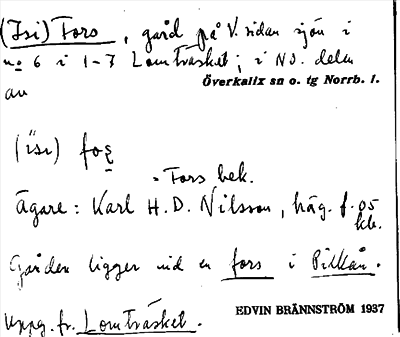 (Isi) Fors, gård på V. sidan sjön i
no 6 i 1-7 Lomträsket; i NO. delen
Överkalix sn o. tg Norrb. l.
av
(isi) fo
Fors bek.
Ägare: Karl H. D. Nilsson, häg. f. 05
Gården ligger vid en fors i Pilkån.
EDVIN BRÄNNSTRÖM 1937
Uppg. fr. Lomträsket.